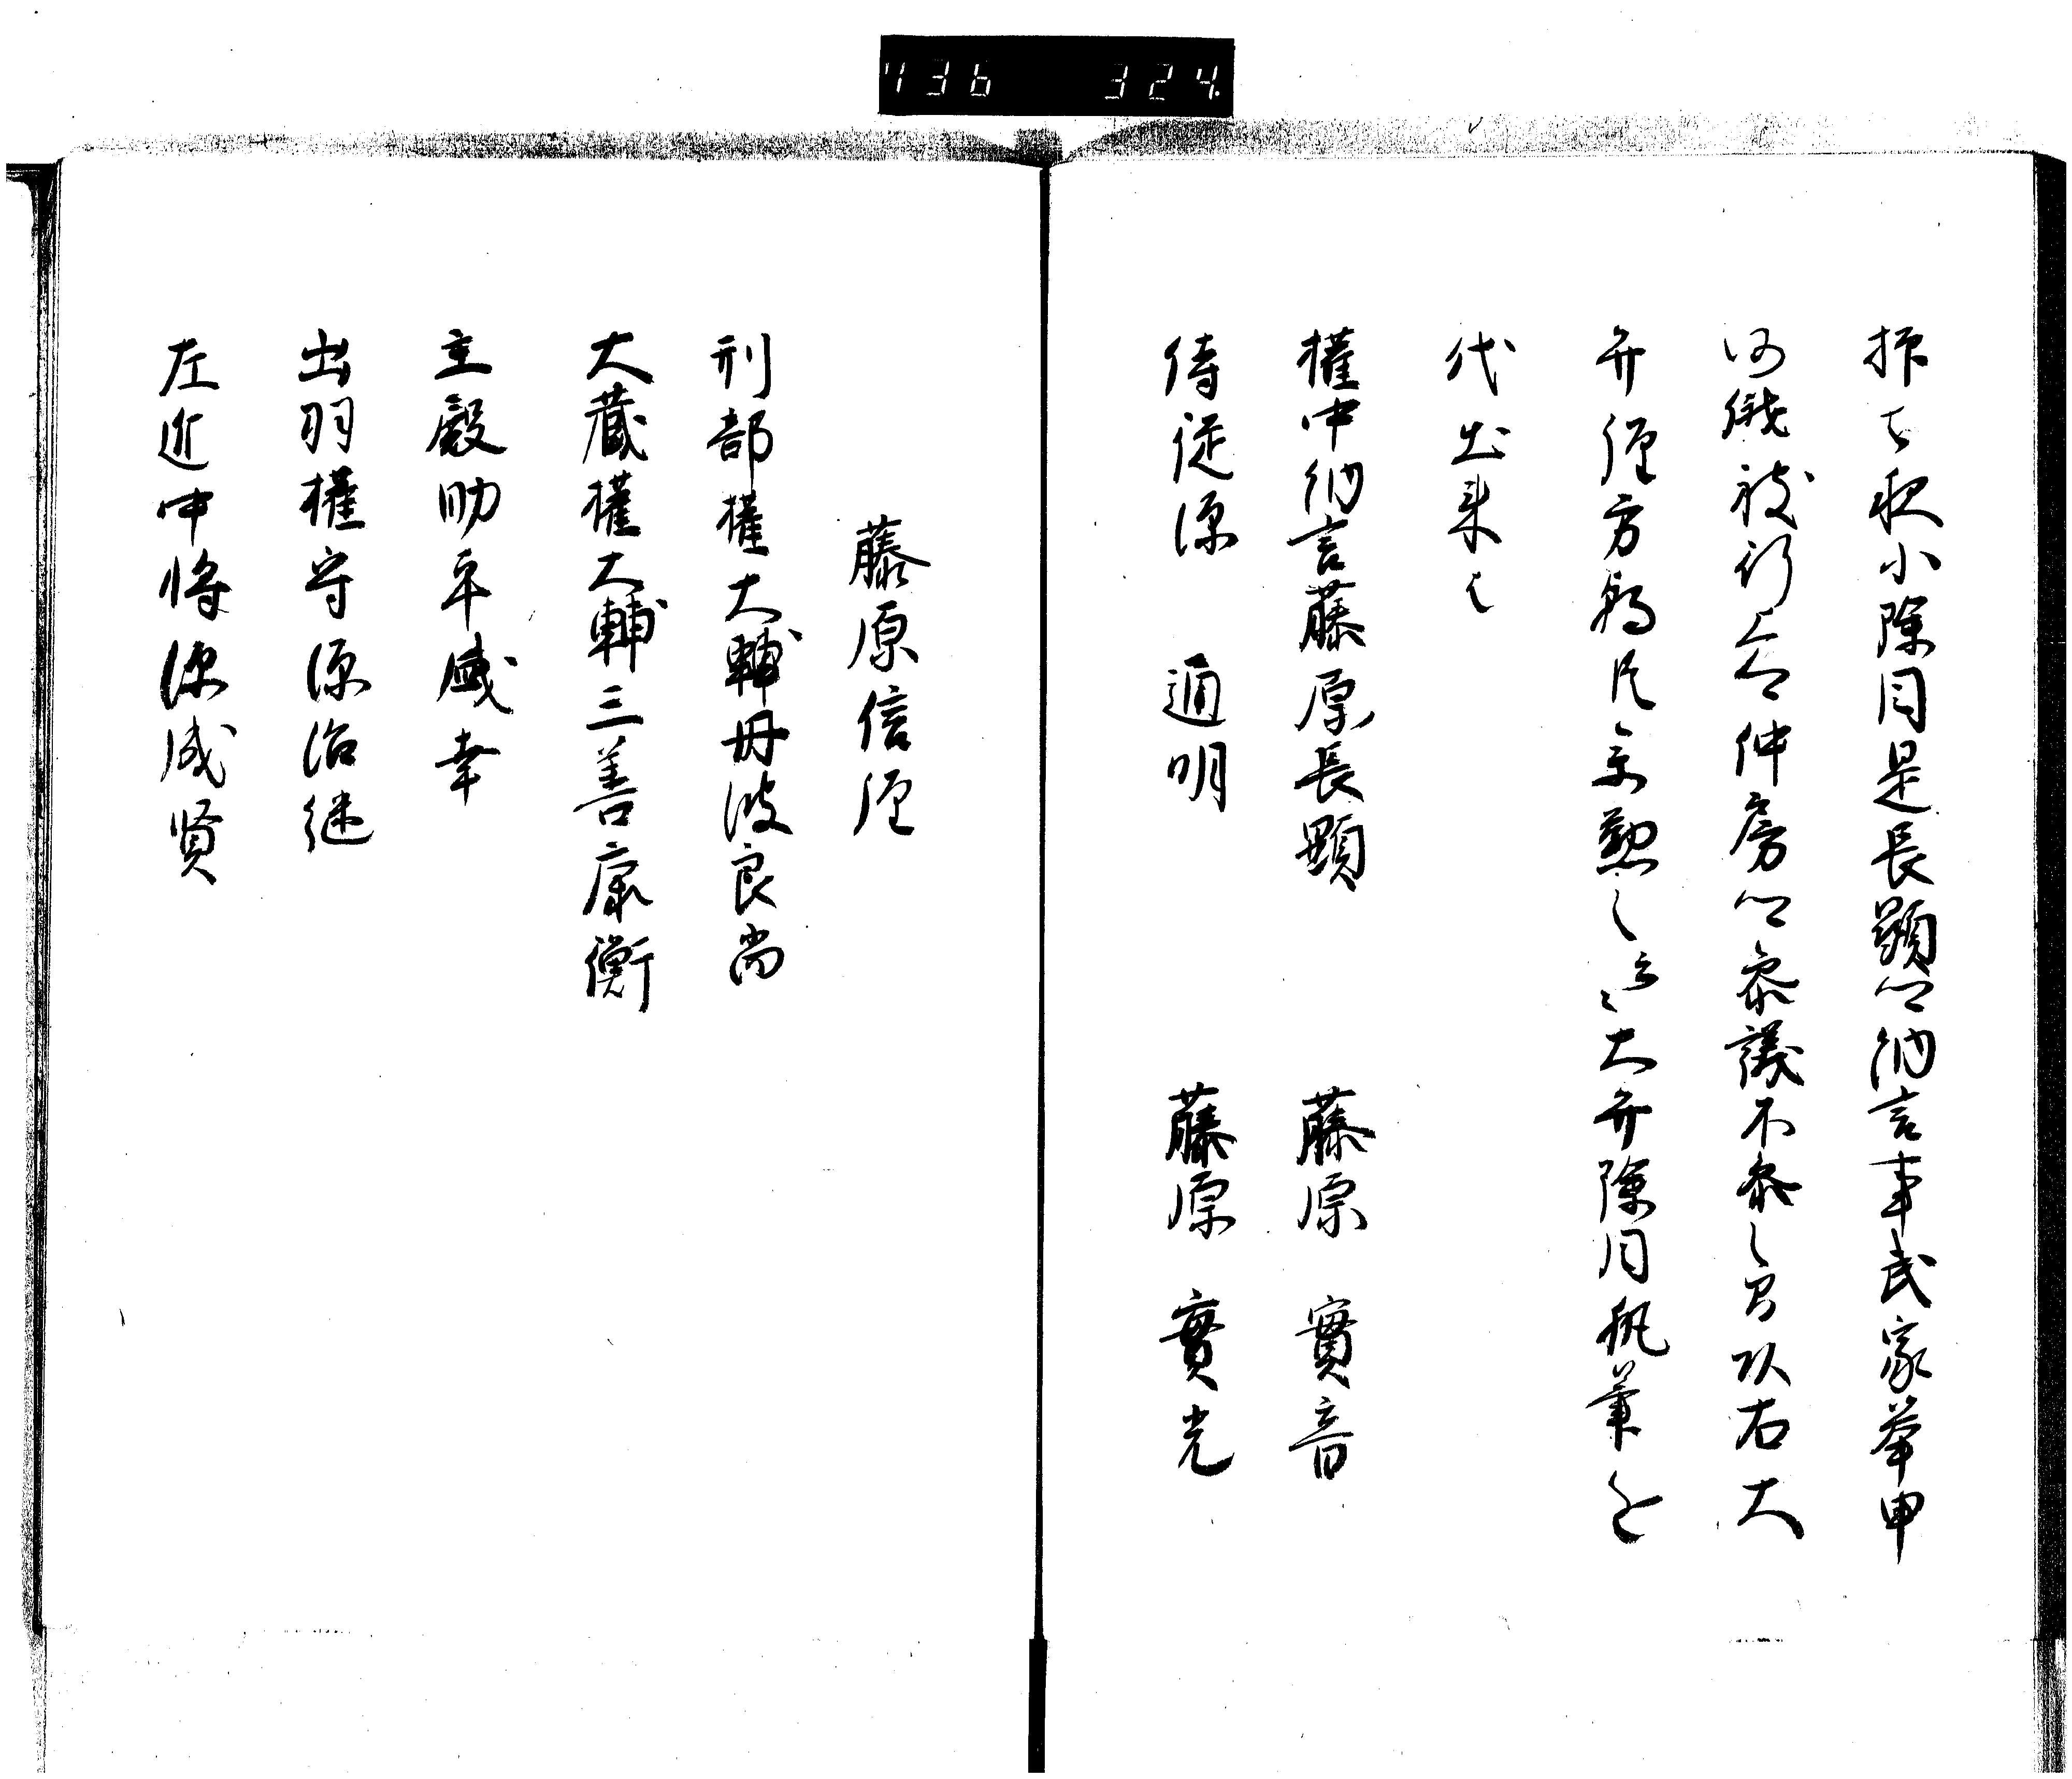 736 324
抑去夜小除目是長顕卿納言事武家挙申
仍俄被行云々仲房卿参議不参之間以右大
弁経方朝臣
大弁除目執筆近
代出来也
權中納言藤原長顯 藤原實音
侍従源 通明 藤原實光
藤原信经
刑部權大輔丹波良尚
大蔵權大輔三善康衡
主殿助平盛幸
出羽權守源治継
左近中将源成賢